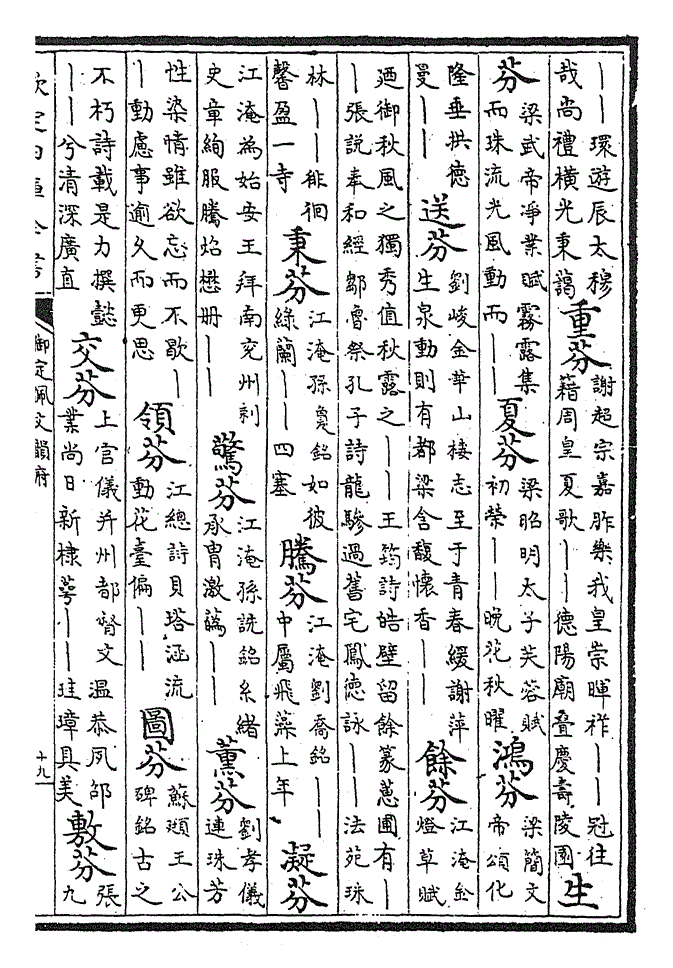 ｜｜環遊辰太穆
哉尚禮横光東藹
重芬
謝超宗嘉胙樂我皇崇暉祚｜｜冠徃
籍周皇夏歌｜｜德陽廟叠慶壽陵園
生
芬
梁武帝淨業賦霧露集
而珠流光風動而｜｜
夏芬
梁昭明太子芙蓉賦
初榮｜｜晩花秋曜
鴻芬
梁簡文
帝頌化
隆垂拱徳
曼｜｜
送芬
劉峻金華山棲志至于青春緩謝萍
生泉動則有都梁含馥懷香｜｜
餘芬
江淹金
燈草賦
廼御秋風之獨秀值秋露之｜｜王筠詩皓壁留餘篆蕙圃有｜
｜張説奉和經鄒魯祭孔子詩龍驂過舊宅鳳徳詠｜｜法苑珠
林｜｜徘徊
馨盈一寺
秉芬
江淹孫夐銘如彼
緑蘭｜｜四塞
騰芬
江淹劉喬銘｜｜
中屬飛藻上年
凝芬
江淹為始安王拜南兖州刺
史章絢服騰焰懋册｜｜
驚芬
江淹孫詵銘糸緒
承胄激藹｜｜
薫芬
劉孝儀
連珠芳
性染情雖欲忘而不歇｜
｜動慮事逾久而更思
領芬
江總詩貝塔涵流
動花臺偏｜｜
圖芬
蘇頲王公
碑銘古之
不朽詩載是力撰懿
｜｜兮清深廣直
交芬
上官儀并州都督文温恭夙邵
業尚日新棣萼｜｜珪璋具美
敷芬
張
九
欽定四庫全書
御定佩文韻府
十九